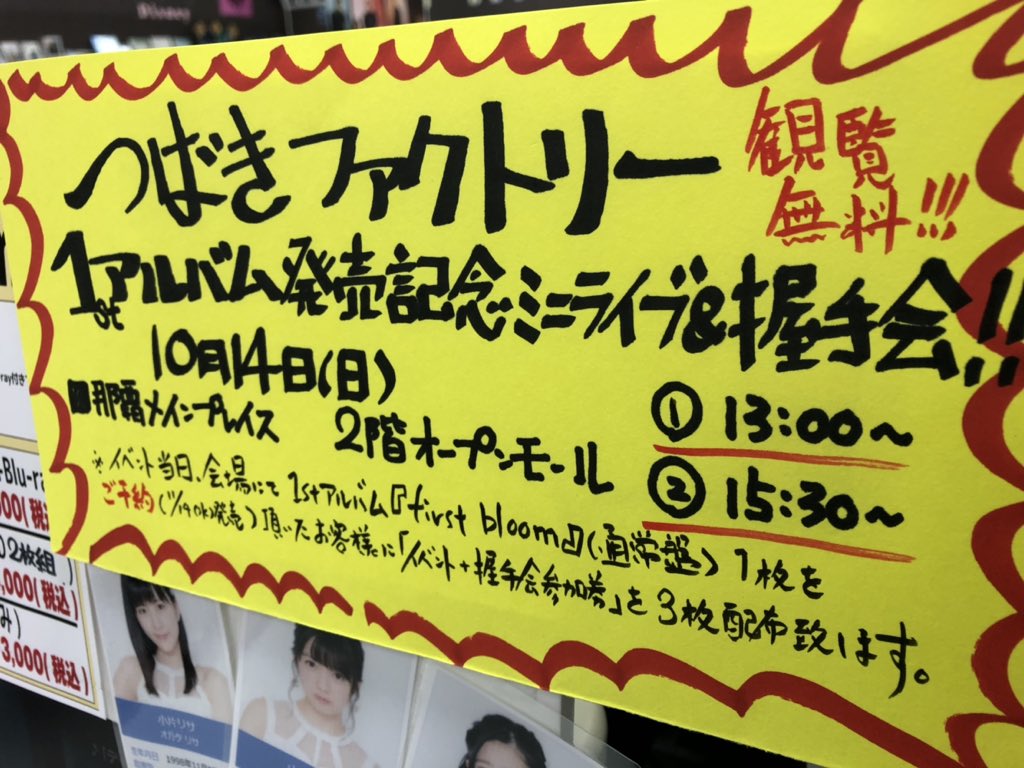 Disney
つばきファクトリー
観覧無料!!!
1stアルバム発売記念ミニライブ&握手会!!
10月14日(日)
那覇メインプレイス 2階オープンモール
① 13:00〜
② 15:30〜
※イベント当日、会場にて1stアルバム『first bloom』(通常盤)1枚を
ご予約(11/14(水)発売)頂いたお客様に「イベント+握手会参加券」を3枚配布致します。
ray付き
Blu-ra
2枚組
,000(税込)
3,000(税込)
小片リサ
オガタ リサ
1998年11月